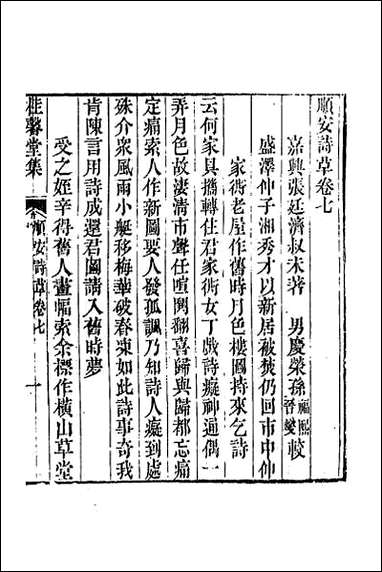 順安詩草卷七
嘉興張廷濟叔未著　男慶榮孫福熙晉燮校
盛澤仲子湘秀才以新居被焚仍回市中仲
家衖老屋作舊時月色樓圖持來乞詩
云何家具攜轉住君家衖女丁戲詩癡神逼偶一
弄月色故淒清市聲任喧鬨翻喜歸與歸都忘痛
定痛索人作新圖要人發孤諷乃知詩人癡到處
殊介衆風雨小艇移梅華破春凍如此詩事奇我
肯陳言用詩成還君圖請入舊時夢
受之姪辛得舊人畫幅索余標作橫山草堂
桂馨堂集　順安詩草卷七　一